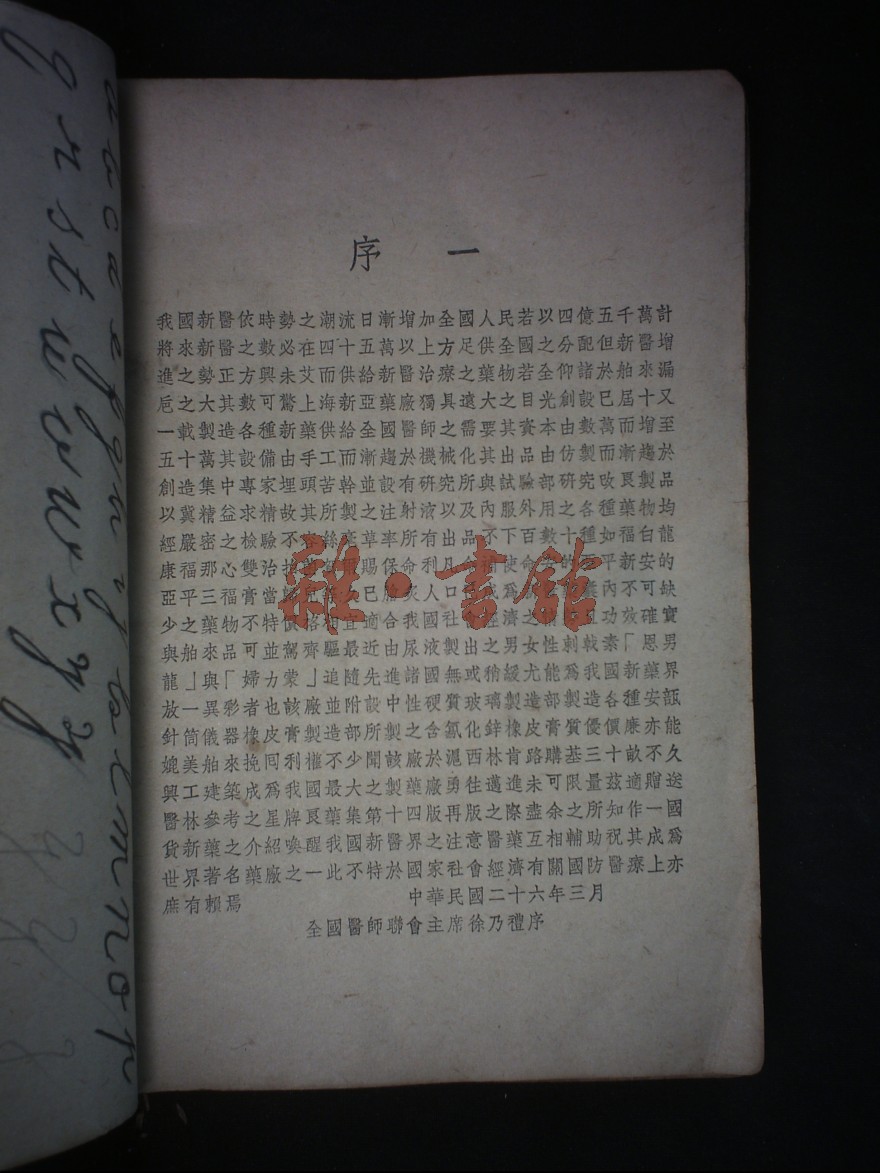 序一
我國新醫依時勢之潮流日漸增加全國人民若以四億五千萬計
將來新醫之數必在四十五萬以上方足供全國之分配但新醫增
進之勢正方興未艾而供給新醫治療之藥物若全仰諸於舶來漏
巵之大其數可驚上海新亞藥廠獨具遠大之目光創設已屆十又
一載製造各種新藥供給全國醫師之需要其資本由數萬而增至
五十萬其設備由手工而漸趨於機械化其出品由仿製而漸趨於
創造集中專家埋頭苦幹並設有研究所與試驗部研究改良製品
以冀精益求精故其所製之注射液以及內服外用之各種藥物均
經嚴密之檢驗不 草率所有出品不下百數十種如福白龍
康福那心雙治 賜保命利凡 使命 的 平新安的
亞平三福膏當 已膾炙人口 成爲 囊內不可缺
少之藥物不特價格 宜適合我國社 經濟之 且功效確實
與舶來品可並駕齊驅最近由尿液製出之男女性刺戟素「恩男
龍」與「婦力蒙」追隨先進諸國無或稍緩尤能爲我國新藥界
放一異彩者也該廠並附設中性硬質玻璃製造部製造各種安瓿
針筒儀器橡皮膏製造部所製之含氯化鋅橡皮膏質優價廉亦能
媲美舶來挽囘利權不少聞該廠於滬西林肯路購基三十畝不久
興工建築成爲我國最大之製藥廠勇往邁進未可限量茲適贈送
醫林參考之星牌良藥集第十四版再版之際盡余之所知作一國
貨新藥之介紹喚醒我國新醫界之注意醫藥互相輔助祝其成爲
世界著名藥廠之一此不特於國家社會經濟有關國防醫療上亦
庶有賴焉
中華民國二十六年三月
全國醫師聯會主席徐乃禮序
雜·書館
a b c d e f g h i j k l m n o p
q r s t u v w x y z